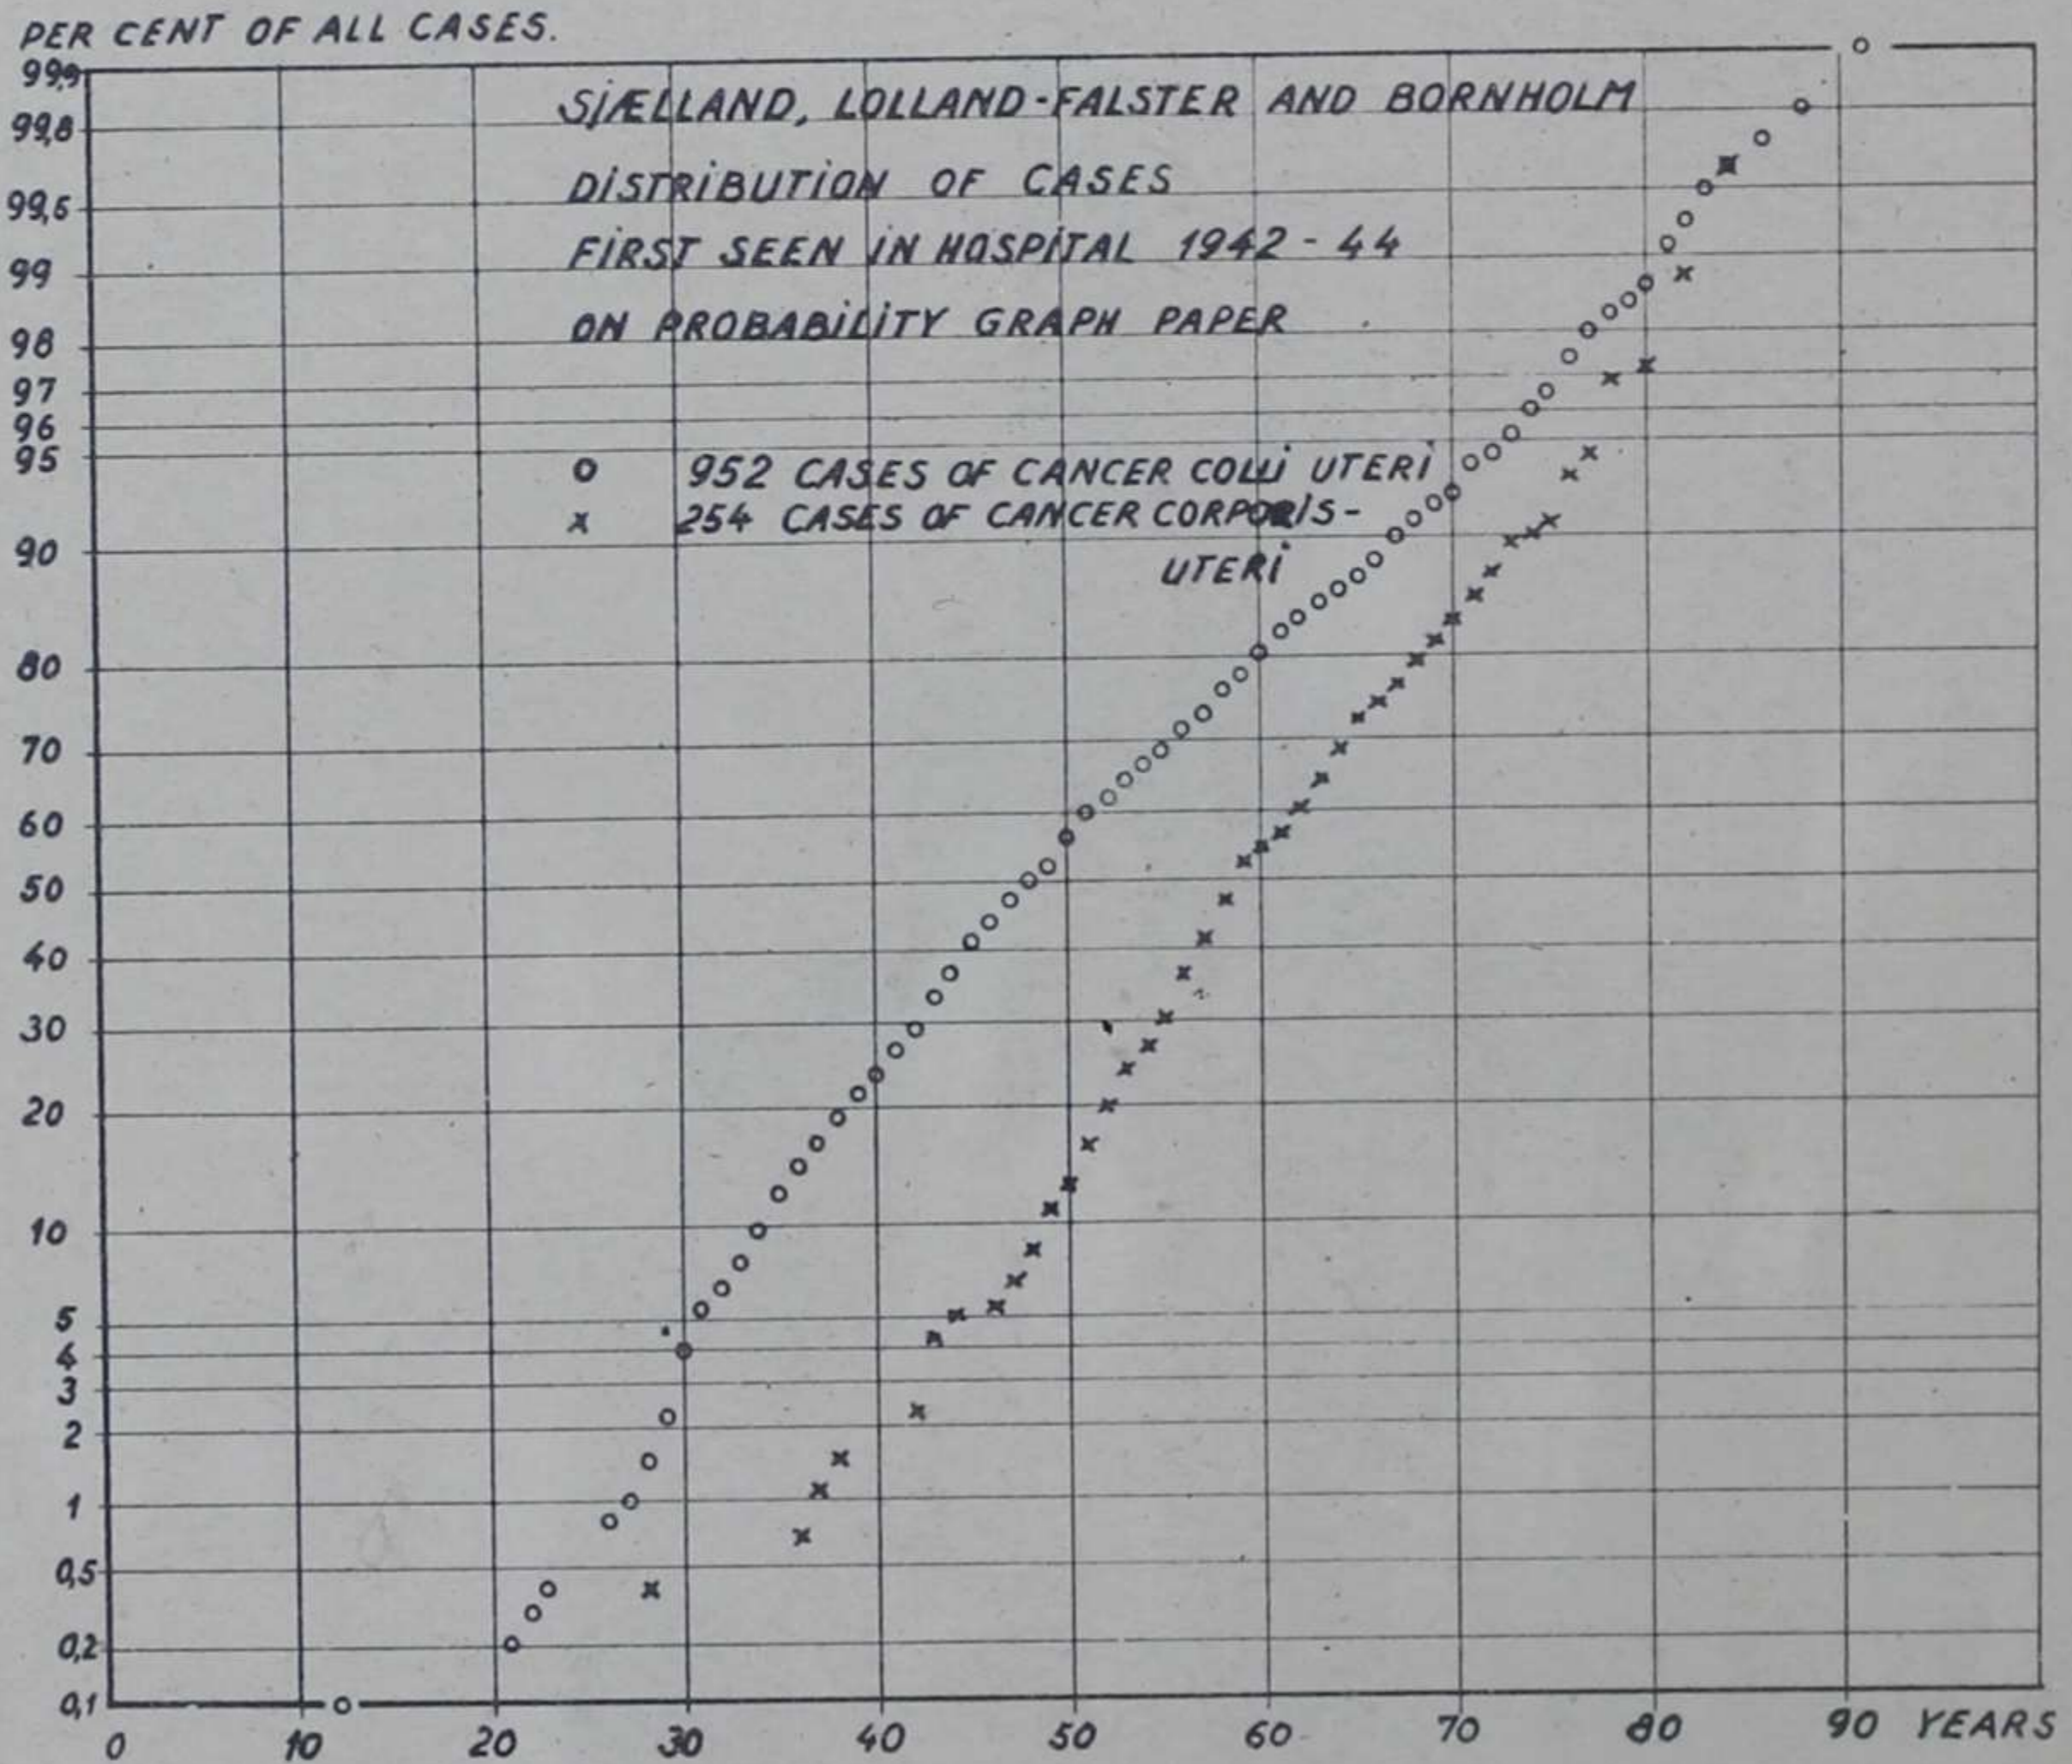 PER CENT OF ALL CASES.
99,9
99,8
99,6
99
98
97
96
95
90
80
70
60
50
40
30
20
10
5
4
3
2
1
0,5
0,2
0,1
SJÆLLAND, LOLLAND-FALSTER AND BORNHOLM
DISTRIBUTION OF CASES
FIRST SEEN IN HOSPITAL 1942 - 44
ON PROBABILITY GRAPH PAPER
o 952 CASES OF CANCER COLLI UTERI
x 254 CASES OF CANCER CORPORIS-
UTERI
0 10 20 30 40 50 60 70 80 90 YEARS